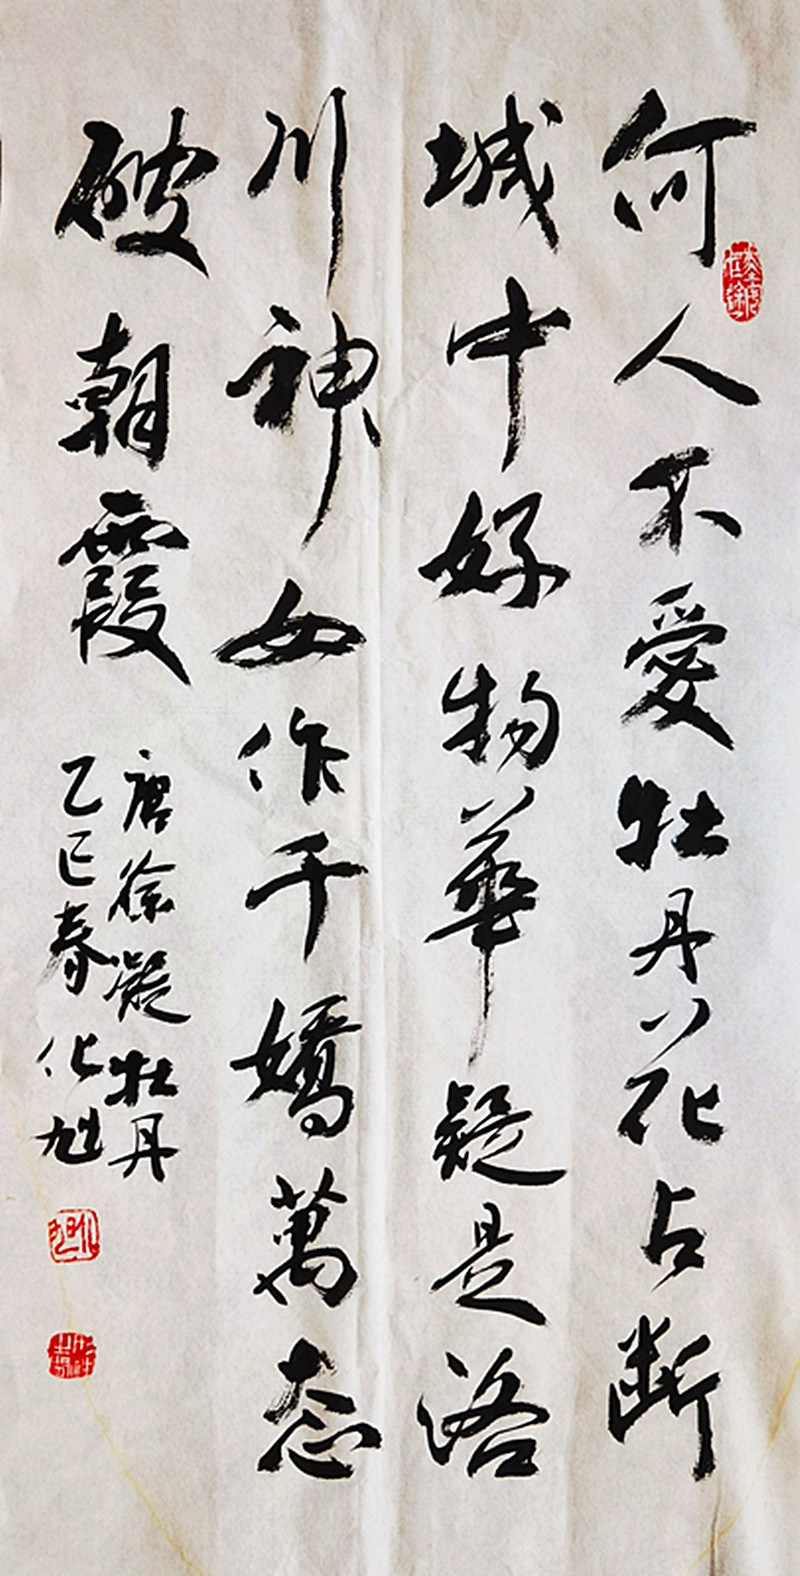 何人不愛牡丹花占断
城中好物華疑是洛
川神女作千嬌萬态
破朝霞
唐徐凝牡丹
乙巳春化旭